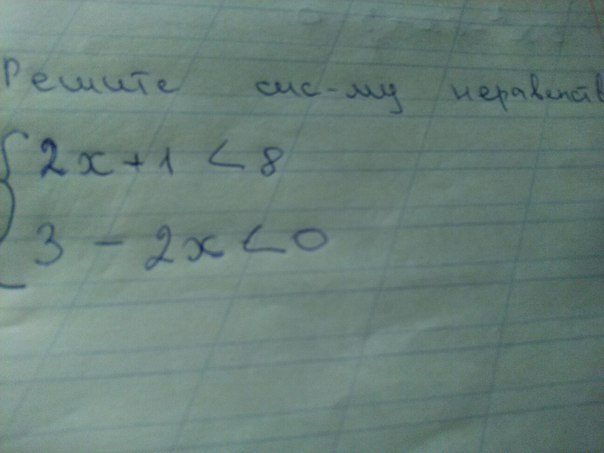 Решите сис-му неравенств
{ 2x+1 < 8
3 - 2x < 0